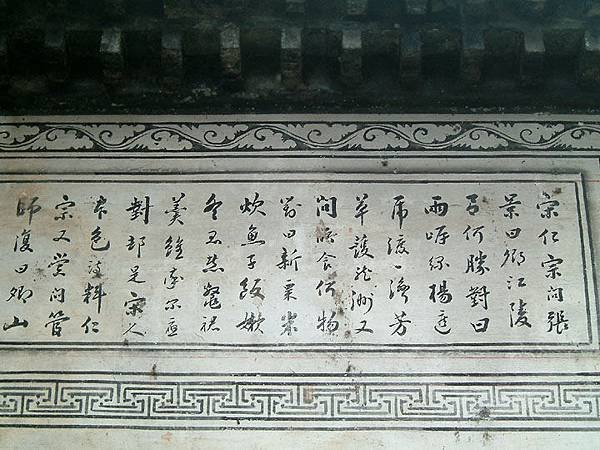 宋仁宗問張
景曰卿江陵
有何勝對曰
兩岸綠楊遮
虎渡一灣芳
草護龍洲又
問所食何物
對曰新粟米
炊魚子飯嫩
冬瓜煮鱉裙
羹雖率尔應
對却是宋人
本色詩料仁
宗又嘗問管
師復曰卿山